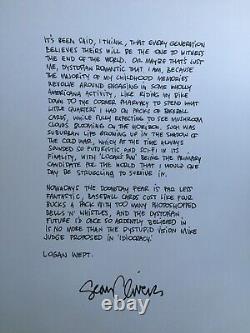 IT'S BEEN SAID, I THINK, THAT EVERY GENERATION
BELIEVES THEIRS WILL BE THE ONE TO WITNESS
THE END OF THE WORLD. OR MAYBE THAT'S JUST
ME, DYSTOPIAN ROMANTIC THAT I AM, BECAUSE
THE MAJORITY OF MY CHILDHOOD MEMORIES
REVOLVE AROUND ENGAGING IN SOME WHOLLY
AMERICANA ACTIVITY, LIKE RIDING MY BIKE
DOWN TO THE CORNER PHARMACY TO SPEND WHAT
LITTLE QUARTERS I HAD ON PACKS OF BASEBALL
CARDS, WHILE FULLY EXPECTING TO SEE MUSHROOM
CLOUDS BLOOMING ON THE HORIZON. SUCH WAS
SUBURBAN LIFE GROWING UP IN THE SHADOW OF
THE COLD WAR, WHICH AT THE TIME ALWAYS
SOUNDED SO FUTURISTIC AND SCI-FI IN ITS
FINALITY, WITH 'LOGAN'S RUN' BEING THE PRIMARY
CANDIDATE FOR THE WORLD THAT I WOULD ONE
DAY BE STRUGGLING TO SURVIVE IN.
NOWADAYS THE DOOMSDAY FEAR IS FAR LESS
FANTASTIC, BASEBALL CARDS COST LIKE FOUR
BUCKS A PACK WITH TOO MANY PHOTOSHOPPED
BELLS N' WHISTLES, AND THE DYSTOPIAN
FUTURE I'D ONCE SO ARDENTLY BELIEVED IN
IS NO MORE THAN THE DYSTUPID VISION MIKE
JUDGE PROPOSED IN 'IDIOCRACY'.
LOGAN WEPT.